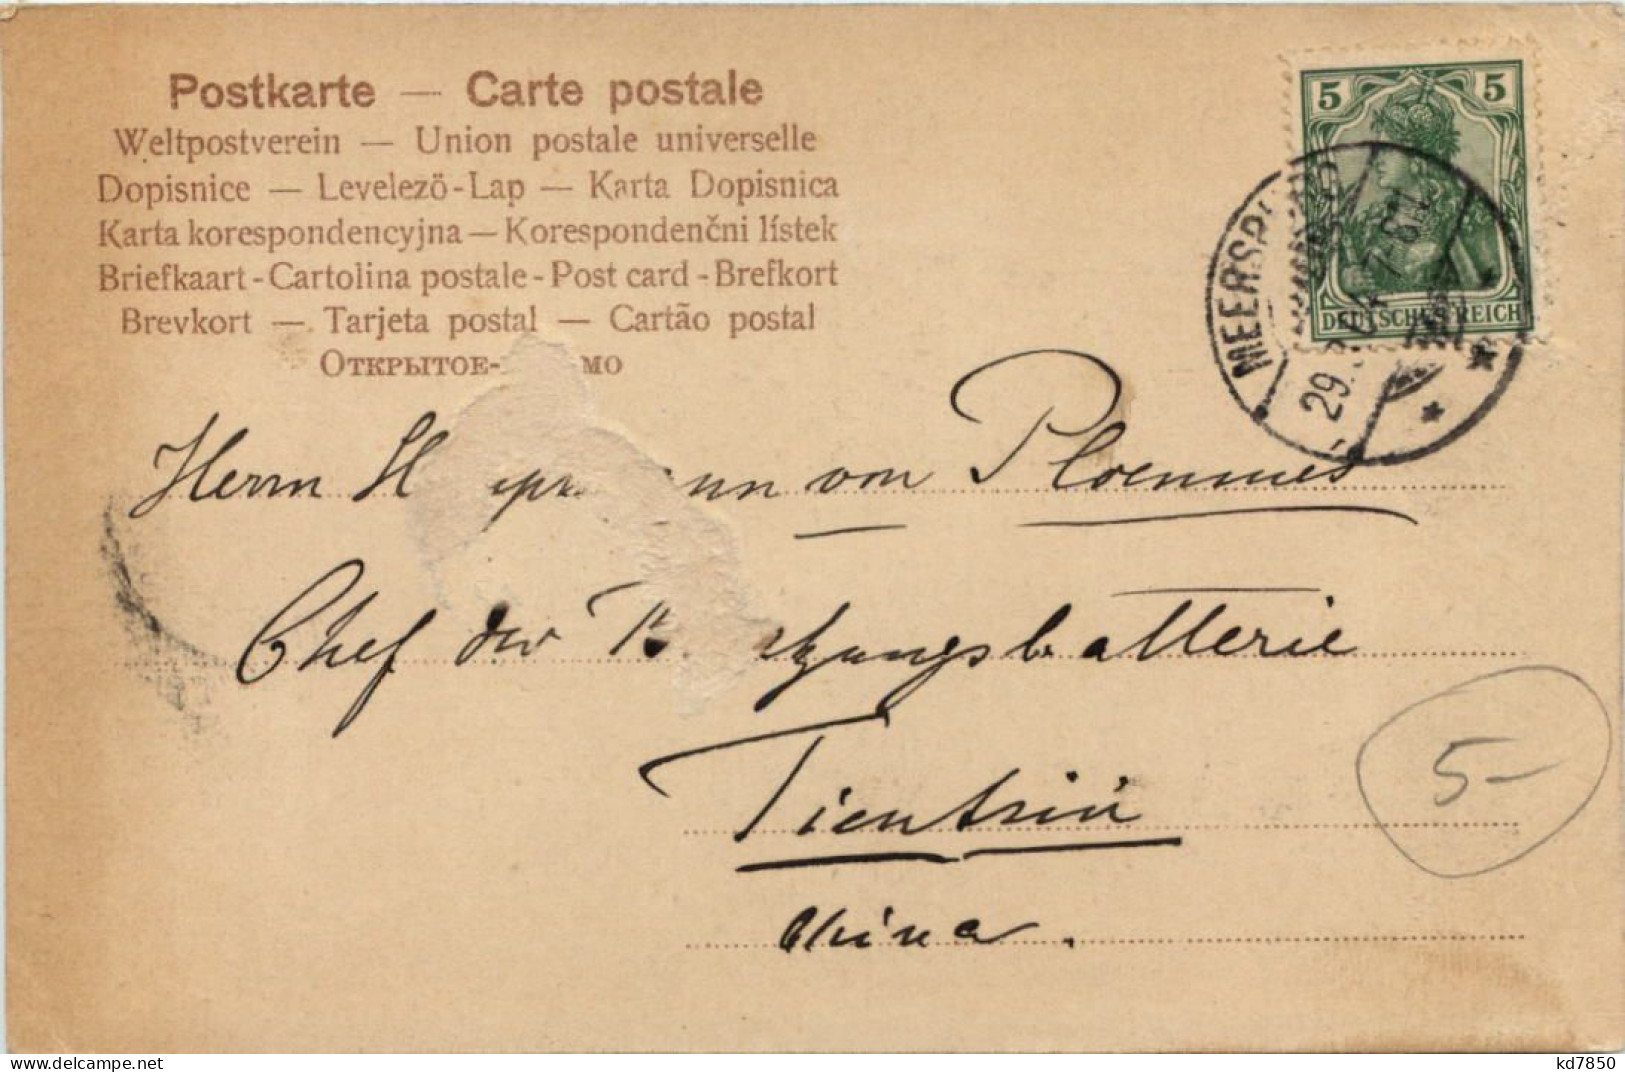 Postkarte — Carte postale
Weltpostverein — Union postale universelle
Dopisnice — Levelező-Lap — Karta Dopisnica
Karta korespondencyjna — Korespondenčni lístek
Briefkaart - Cartolina postale - Post card - Brefkort
Brevkort — Tarjeta postal — Cartão postal
ОТКРЫТОЕ- МО
5 5
DEUTSCHES REICH
MEERSB
29. 04 7-8N
Herrn H up nn von Ploennies
Chef der B tzungsbatterie
Tientsin
China.
5-
kd7850
delcampe.net